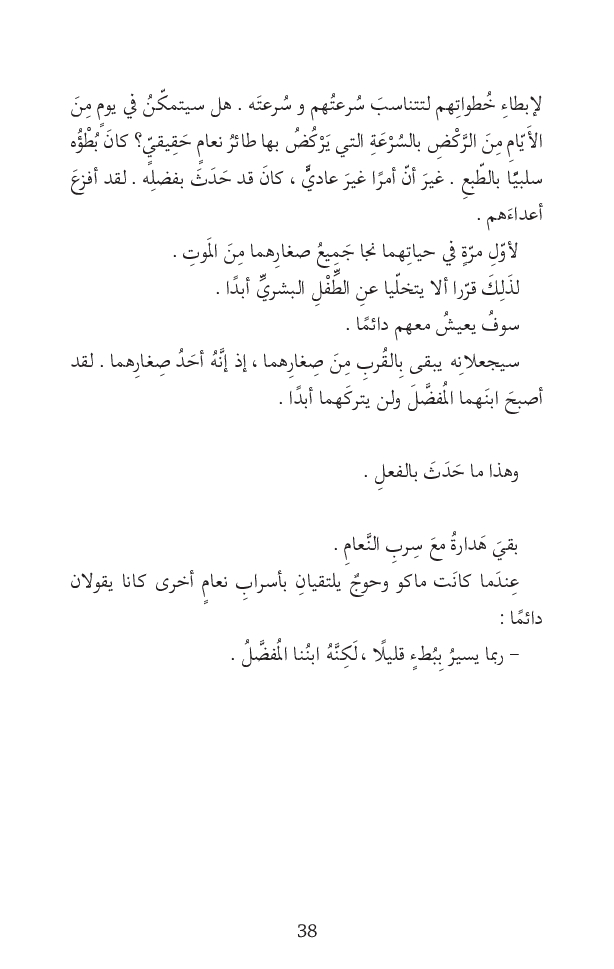 لإبطاءِ خُطواتِهم لتتناسبَ سُرعتُهم و سُرعتَه . هل سيتمكّنُ في يومٍ مِنَ
الأَيّامِ مِنَ الرَّكْضِ بالسُرْعَةِ التي يَرْكُضُ بها طائرُ نعامٍ حَقِيقيٍّ؟ كانَ بُطْؤُه
سلبيًّا بالطّبعِ . غيرَ أنّ أمرًا غيرَ عاديٍّ ، كانَ قد حَدَثَ بفضلِه . لقد أفزعَ
أعداءَهم .
لأوّلِ مرّةٍ في حياتِهما نجا جَمِيعُ صغارِهما مِنَ المَوتِ .
لذَلِكَ قرّرا ألا يتخلّيا عنِ الطِّفْلِ البشريِّ أبدًا .
سوفُ يعيشُ معهم دائمًا .
سيجعلانِه يبقى بِالقُربِ مِنَ صِغارِهما ، إذ إنَّهُ أحَدُ صِغارِهما . لقد
أصبحَ ابنَهما المُفضَّلَ ولن يتركَهما أبدًا .
وهذا ما حَدَثَ بالفعلِ .
بقيَ هَدارةُ معَ سِربِ النَّعامِ .
عِندَما كانَت ماكو وحوجٌ يلتقيانِ بأسرابِ نعامٍ أخرى كانا يقولان
دائمًا :
– ربما يسيرُ بِبُطءٍ قليلًا ، لَكِنَّهُ ابنُنا المُفضَّلُ .
38